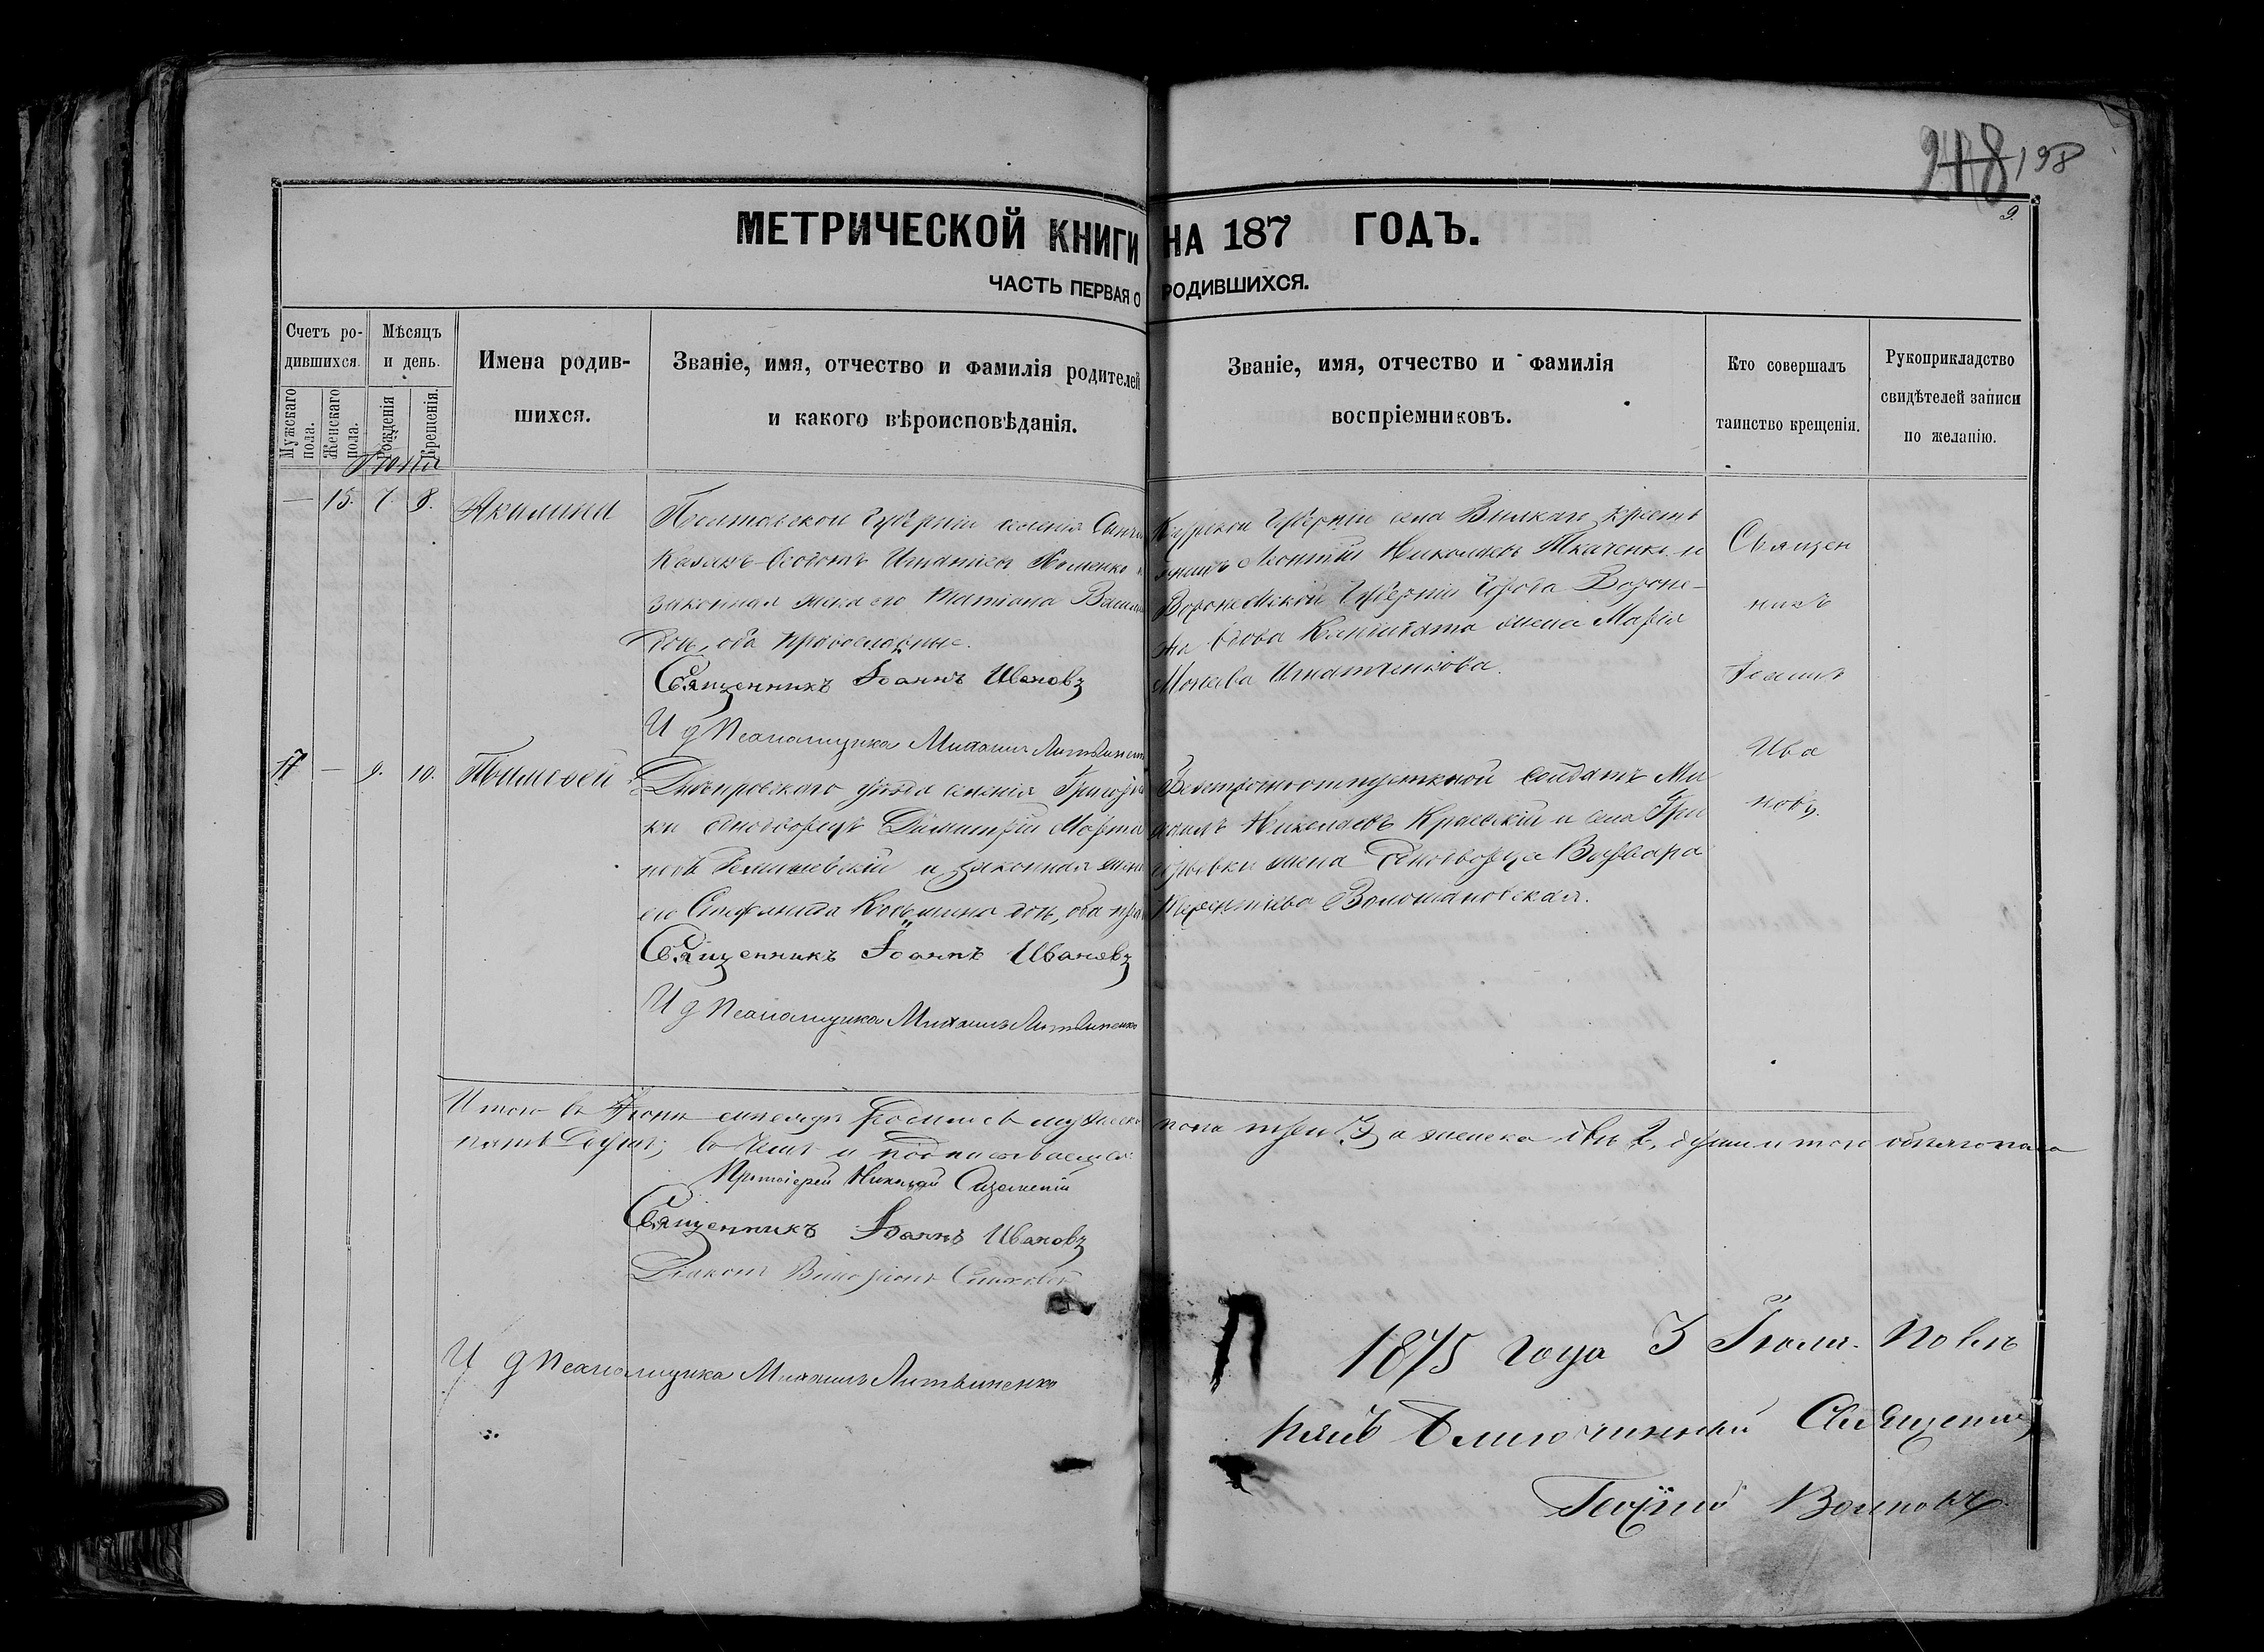 248 198
9.
МЕТРИЧЕСКОЙ КНИГИ НА 187 ГОДЪ.
ЧАСТЬ ПЕРВАЯ О РОДИВШИХСЯ.
Счетъ ро-
дившихся.
Мужскаго пола.
Женскаго пола.
Мѣсяцъ
и день.
Рожденія
Крещенія.
Имена родив-
шихся.
Званіе, имя, отчество и фамилія родителей
и какого вѣроисповѣданія.
Званіе, имя, отчество и фамилія
воспріемниковъ.
Кто совершалъ
таинство крещенія.
Рукоприкладство
свидѣтелей записи
по желанію.
Іюнь
— 15. 7. 8.
Акилина
Полтавской Губерніи
Козакъ Ѳеодотъ Игнатіевъ Хоменко
законная жена его Татіана
дочь, оба православные.
Священникъ Іоаннъ Ивановъ
И д Псаломщика Михаилъ Литвиненко
Курской Губерніи села кресть
янинъ Леонтій Николаевъ Ткаченко и
Воронежской Губерніи Города Вороне-
жа вдова жена Марія
Игнатенкова.
Священ
никъ
Іоаннъ
Ива
новъ.
17 — 9. 10.
Тимоѳей
Днѣпровскаго уѣзда селенія Григорьев
ки однодворецъ Димитрій Марти
новъ и законная жена
его Стефанида Козьмина дочь, оба пра
Священникъ Іоаннъ Ивановъ
И д Псаломщика Михаилъ Литвиненко
Безсрочноотпускной солдатъ Ми
хаилъ Николаевъ Краевскій и села Гри
горьевки жена Однодворца Варвара
Терентіева Воломановская.
Итого въ Іюнѣ мѣсяцѣ родилось мужеска пола три 3, а женска двѣ 2, души и того обоего пола
пять душъ; въ чемъ и подписываемся:
Протоіерей Николай
Священникъ Іоаннъ Ивановъ
Діаконъ
И д Псаломщика Михаилъ Литвиненко
1875 года 3 Іюля. Повѣ
рялъ Благочинный Священникъ
Георгій Воиновъ